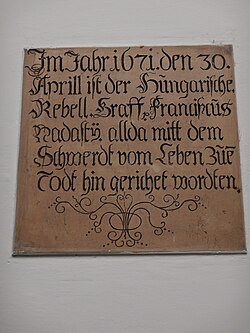 Im Jahr 1671. den 30.
Aprill ist der Hungarische.
Rebell. Graff. Franciscus
Nadastÿ allda mitt dem
Schwerdt vom Leben Zue
Todt hin gerichet wordten,